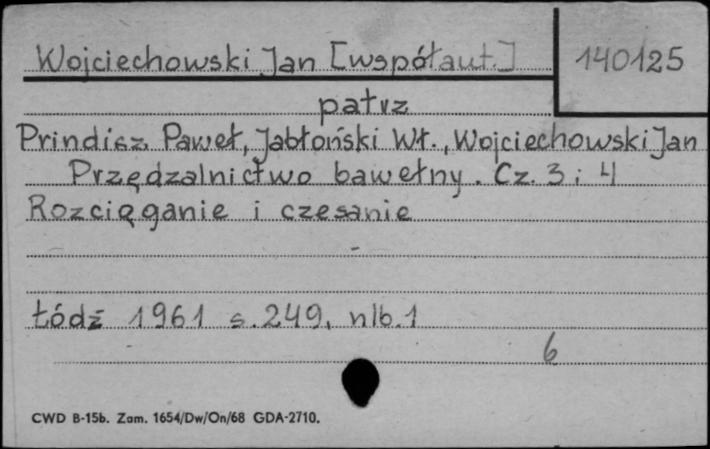 Wojciechowski Jan [współaut.] 140125
patrz
Prindisz Paweł, Jabłoński Wł., Wojciechowski Jan
Przędzalnictwo bawełny. Cz. 3 i 4
Rozciąganie i czesanie
Łódź 1961 s. 249, nlb. 1
6
CWD B-15b. Zam. 1654/Dw/On/68 GDA-2710.